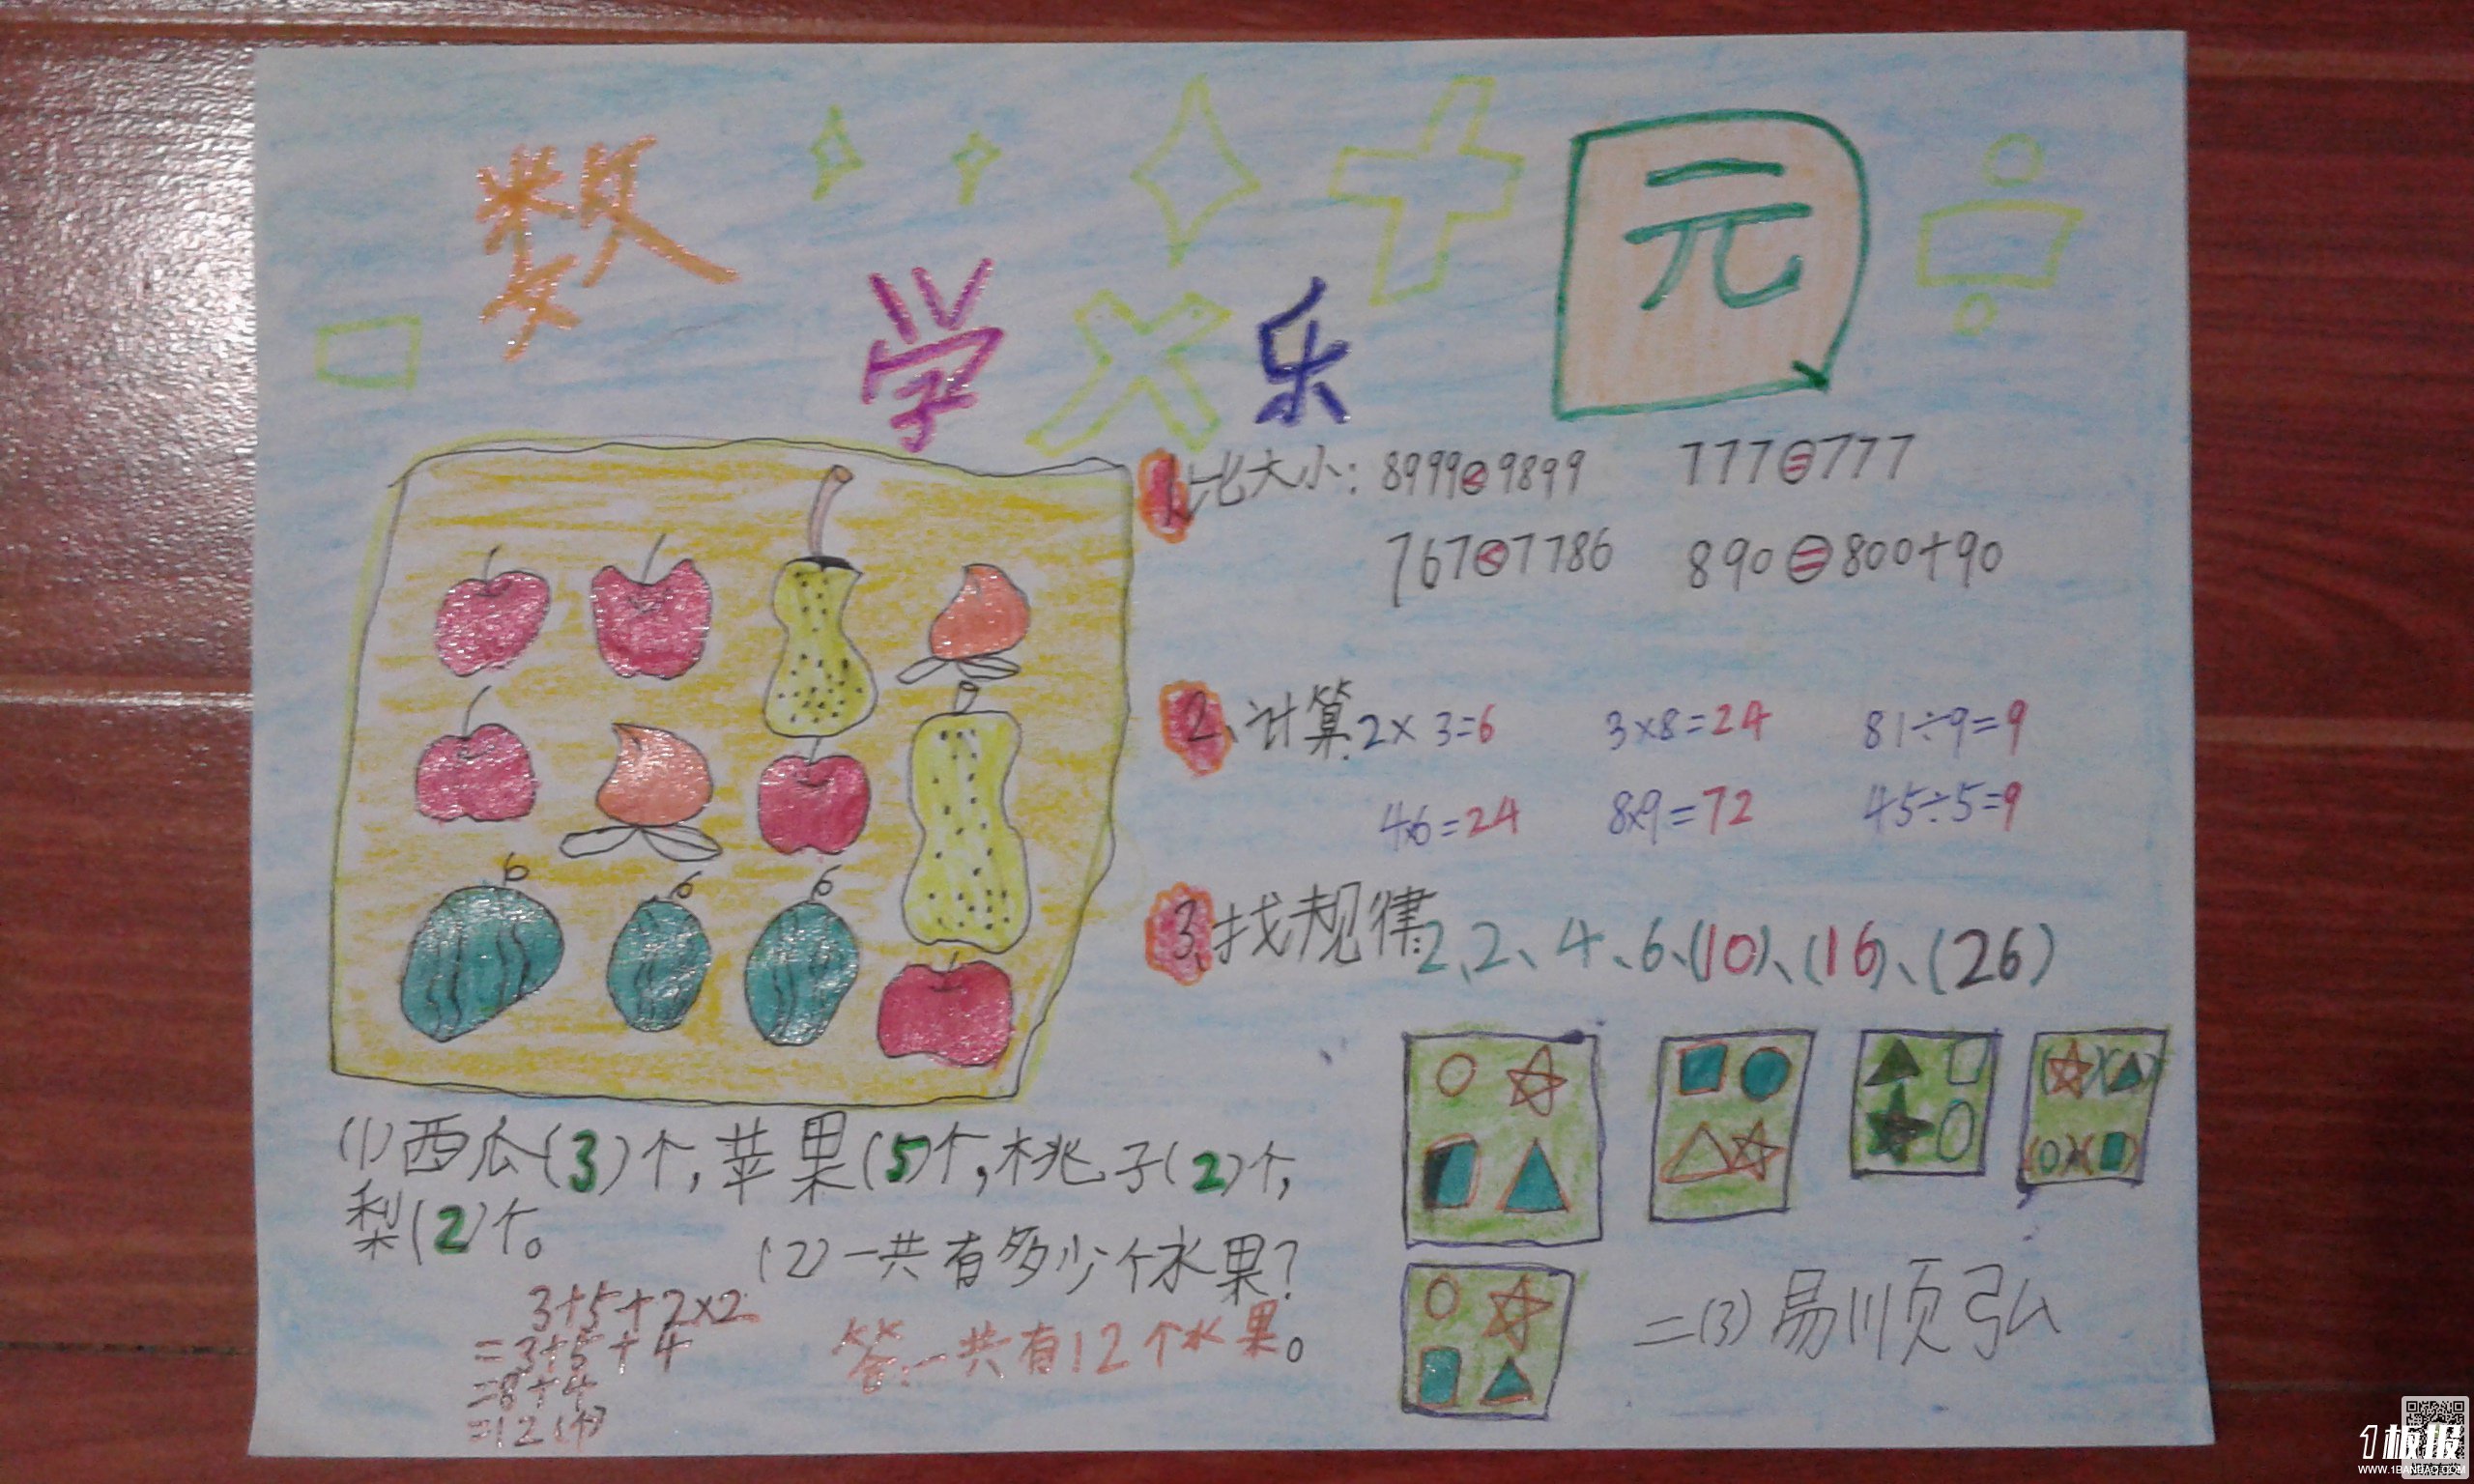 数
学
乐
元
1、比大小：8999<9899 777=777
767<7786 890=800+90
2、计算2×3=6 3×8=24 81÷9=9
4×6=24 8×9=72 45÷5=9
3、找规律2、2、4、6、(10)、(16)、(26)
(1)西瓜(3)个,苹果(5)个,桃子(2)个,
梨(2)个。
(2)一共有多少个水果?
3+5+2×2
=3+5+4
=8+4
=12(个)
答:一共有12个水果。
二(3)易顺弘
1板报
WWW.1BANBAO.COM